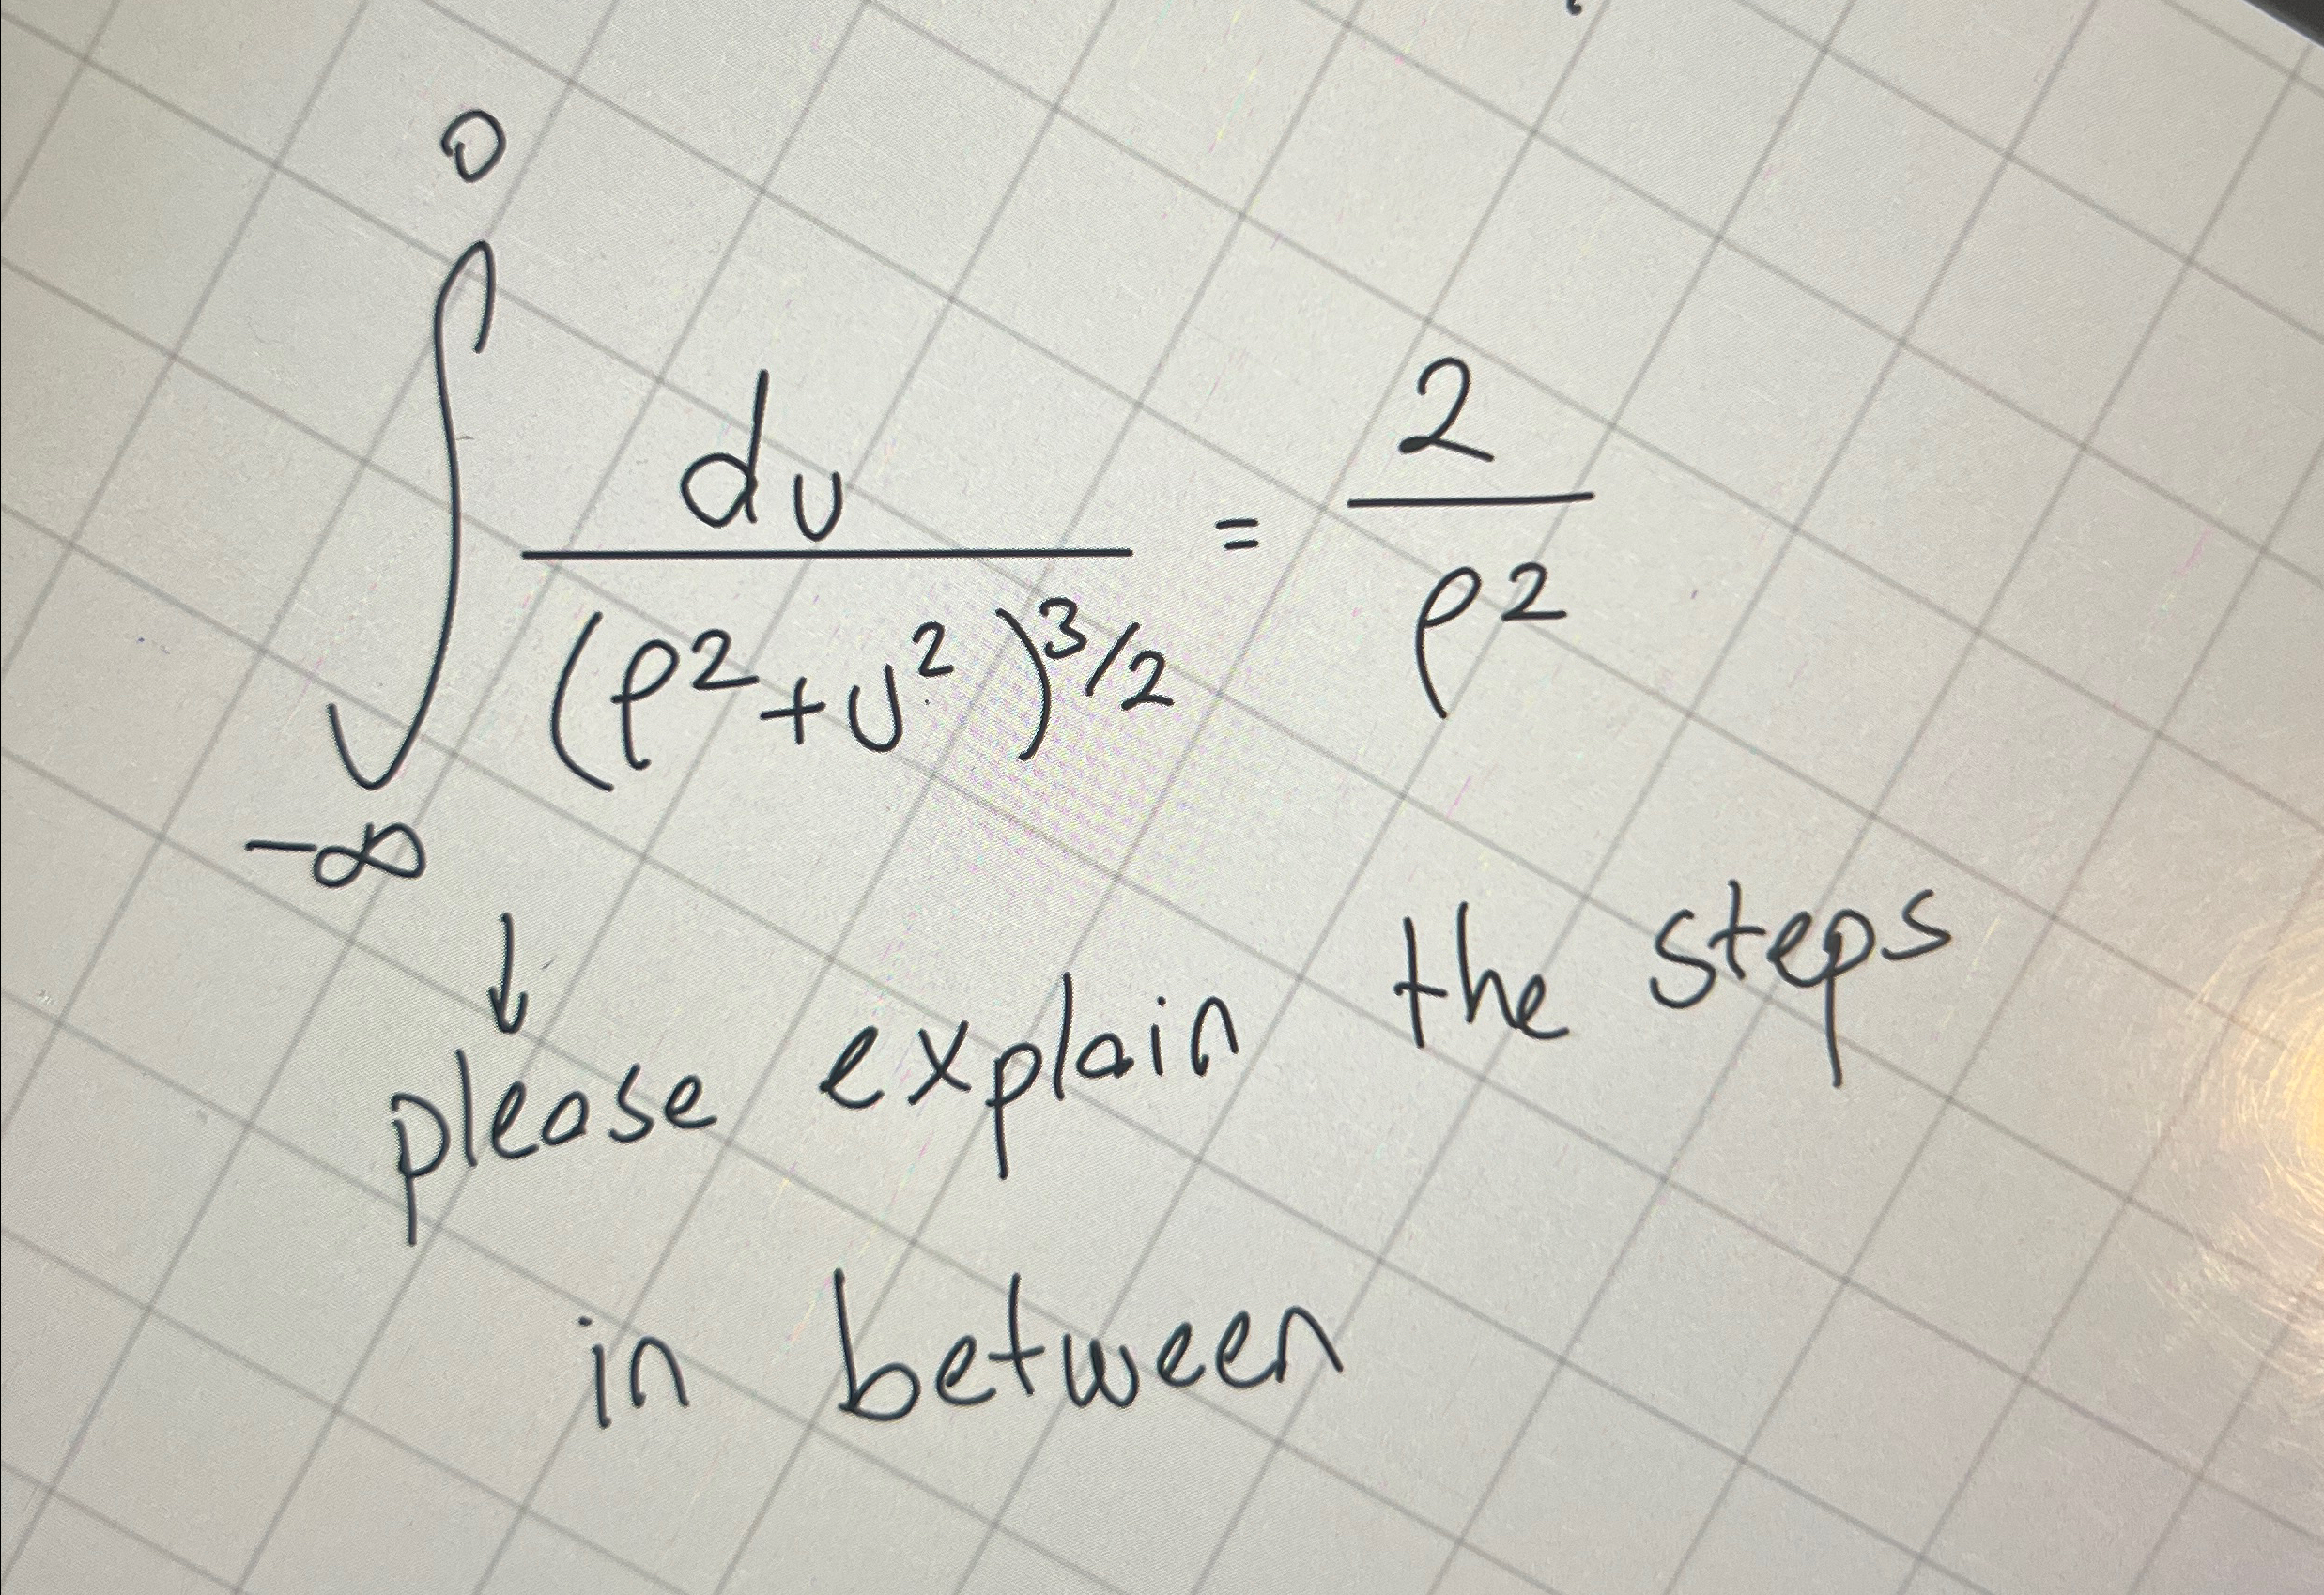 ∫_{-∞}^{0} du / (ρ² + u²)^{3/2} = 2 / ρ²
↓
please explain the steps
in between